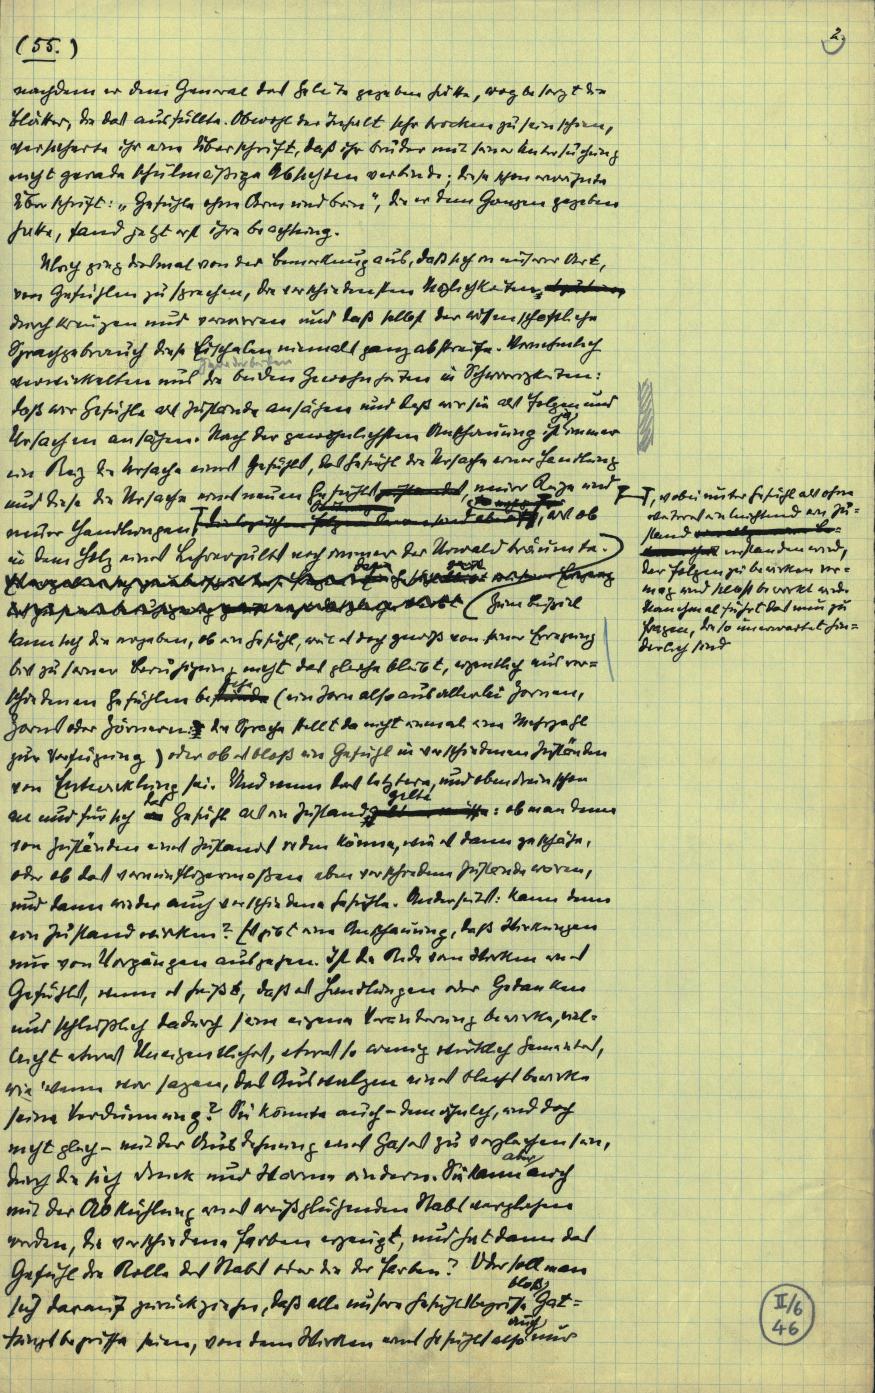 (55.)
2.
nachdem er dem General das Geleite gegeben hatte, wog besorgt die
Blätter, die das ausfüllte. Obwohl der Inhalt sehr trocken zu sein schien,
versicherte ihr eine Überschrift, daß ihr Bruder mit seiner Untersuchung
nicht gerade schulmäßige Absichten verbinde; diese schon erwähnte
Überschrift: „Gefühle ohne Arm und Bein", die er dem Ganzen gegeben
hatte, fand jetzt erst ihre Beachtung.
Ulrich ging diesmal von der Bemerkung aus, daß sich in unserer Art,
von Gefühlen zu sprechen, die verschiedensten Möglichkeiten
durchkreuzen und verwirren und daß selbst der wissenschaftliche
Sprachgebrauch diese Eischalen niemals ganz abstreife. Vornehmlich
verwickelten uns die beiden Gewohnheiten in Schwierigkeiten:
daß wir Gefühle als Zustände ansähen und daß wir sie als Folgen und
Ursachen ansähen. Nach der gewöhnlichsten Anschauung ist ja immer
ein Reiz die Ursache eines Gefühls, das Gefühl die Ursache einer Handlung
und diese die Ursache eines neuen Gefühls, neuer Reize und
neuer Handlungen, als ob
in dem Holz eines Lehrerpults noch immer der Urwald träumte.
Zum Beispiel
kann sich da ergeben, ob ein Gefühl, weil es doch gewiß von seiner Erregung
bis zu seiner Beruhigung nicht das gleiche bleibt, eigentlich aus ver=
schiedenen Gefühlen bestehe (ein Zorn also aus allerlei Zornen,
Zorns oder Zörnern: die Sprache stellt da nicht einmal eine Mehrzahl
zur Verfügung) oder ob es bloß ein Gefühl in verschiedenen Zuständen
von Entwicklung sei. Und wenn das letztere, und obendrein schon
an und für sich das Gefühl als ein Zustand gelte: ob man denn
von Zuständen eines Zustands reden könne, wie es dann geschähe,
oder ob das vernünftigermaßen eben verschiedene Zustände wären,
und dann wieder auch verschiedene Gefühle. Anderseits: kann denn
ein Zustand wirken? Es gibt eine Anschauung, daß Wirkungen
nur von Vorgängen ausgehen. Ist die Rede vom Wirken eines
Gefühls, wenn es heißt, daß es Handlungen oder Gedanken
und schließlich dadurch seine eigene Veränderung bewirke, viel=
leicht etwas Uneigentliches, etwas so wenig wirklich Gemeintes,
wie wenn wir sagen, das Auswalzen eines Blechs bewirke
seine Verdünnung? Sie könnte auch – dem ähnlich, und doch
nicht gleich – mit der Ausdehnung eines Gases zu vergleichen sein,
durch die sich Druck und Wärme ändern. Sie kann aber auch
mit der Abkühlung eines weißglühenden Stabs verglichen
werden, die verschiedene Farben erzeugt, und hat dann das
Gefühl die Rolle des Stabs oder die der Farben? Oder soll man
sich darauf zurückziehen, daß alle unsere Gefühlsbegriffe bloß Gat=
tungsbegriffe seien, von dem Wirken eines Gefühls also auch nur
, wobei unter Gefühl als ohne
weiteres einleuchtend ein Zu=
stand
verstanden wird,
der Folgen zu bewirken ver=
mag und selbst bewirkt wird.
Manchmal führt das nun zu
Fragen, die so unerwartet hin=
derlich sind
II/6
46